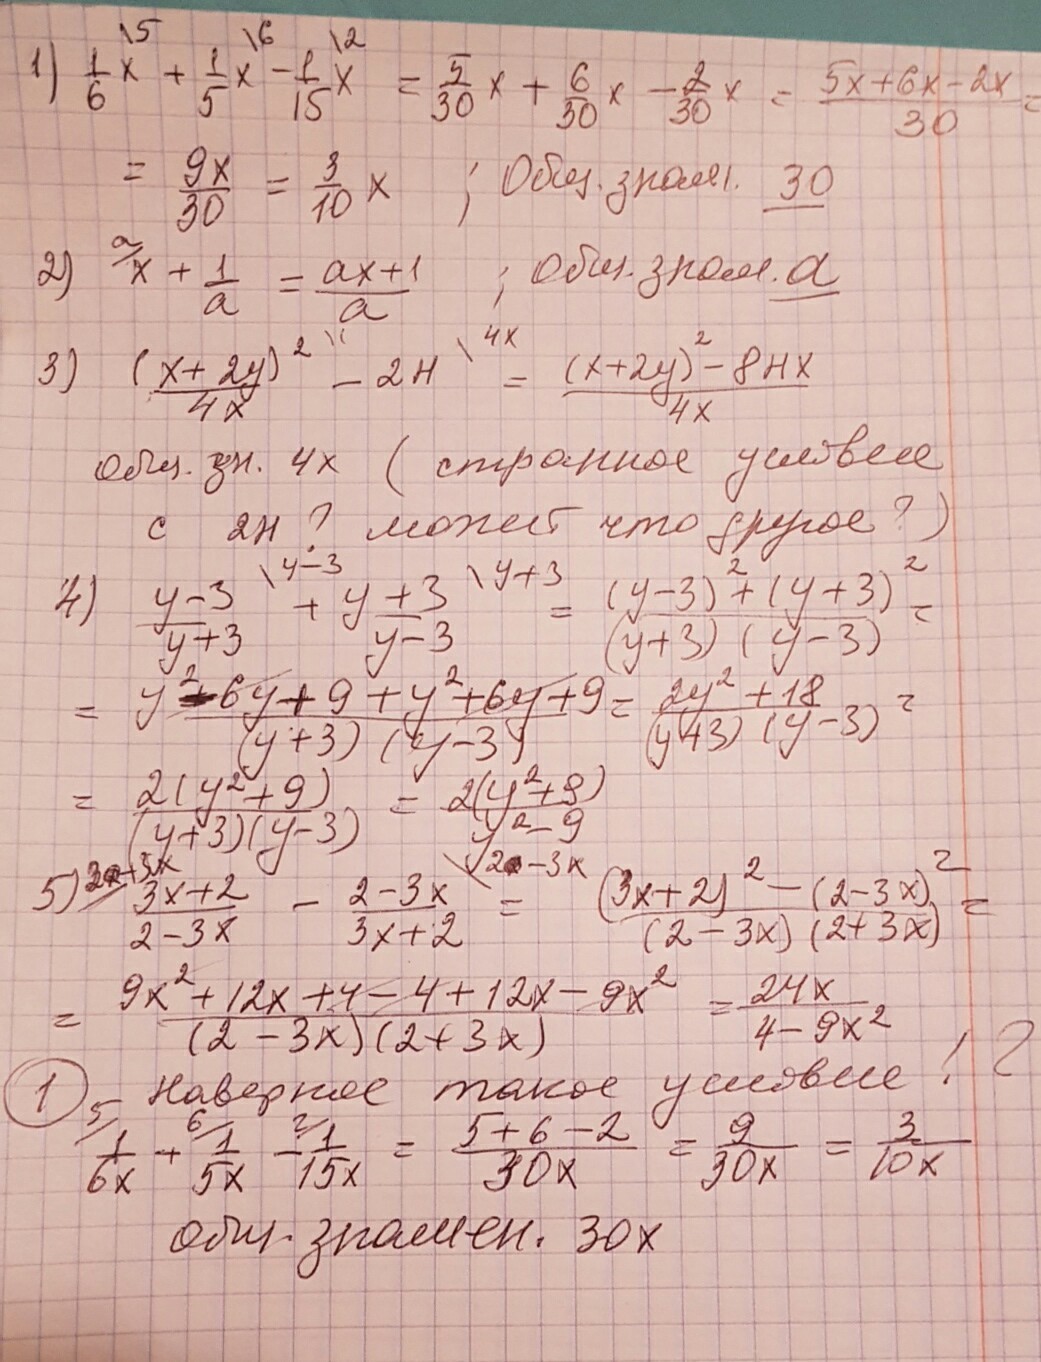 1) 1/6 x \5 + 1/5 x \6 - 1/15 x \2 = 5/30 x + 6/30 x - 2/30 x = (5x+6x-2x)/30 =
= 9x/30 = 3/10 x ; Общ. знам. 30
2) a/ x + 1/a = (ax+1)/a ; общ. знам. a
3) (x+2y)²/4x \1 - 2н \4x = ((x+2y)² - 8нx)/4x
общ. зн. 4x (странное условие
с 2н? может что другое?)
4) (y-3)/(y+3) \y-3 + (y+3)/(y-3) \y+3 = ((y-3)² + (y+3)²)/((y+3)(y-3)) =
= (y² - 6y + 9 + y² + 6y + 9)/((y+3)(y-3)) = (2y² + 18)/((y+3)(y-3)) =
= 2(y²+9)/((y+3)(y-3)) = 2(y²+9)/(y²-9)
5) 2+3x/ (3x+2)/(2-3x) - (2-3x)/(3x+2) \2-3x = ((3x+2)² - (2-3x)²)/((2-3x)(2+3x)) =
= (9x² + 12x + 4 - 4 + 12x - 9x²)/((2-3x)(2+3x)) = 24x/(4-9x²)
1 Наверное такое условие! ?
5/ 1/6x + 6/ 1/5x - 2/ 1/15x = (5+6-2)/30x = 9/30x = 3/10x
общ. знамен. 30x